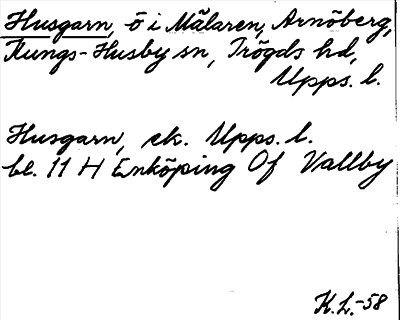 Husgarn, ö i Mälaren, Arnöberg,
Kungs-Husby sn, Trögds hd,
Upps. l.
Husgarn, ek. Upps. l.
bl. 11 H Enköping Of Vallby
K.L.-58